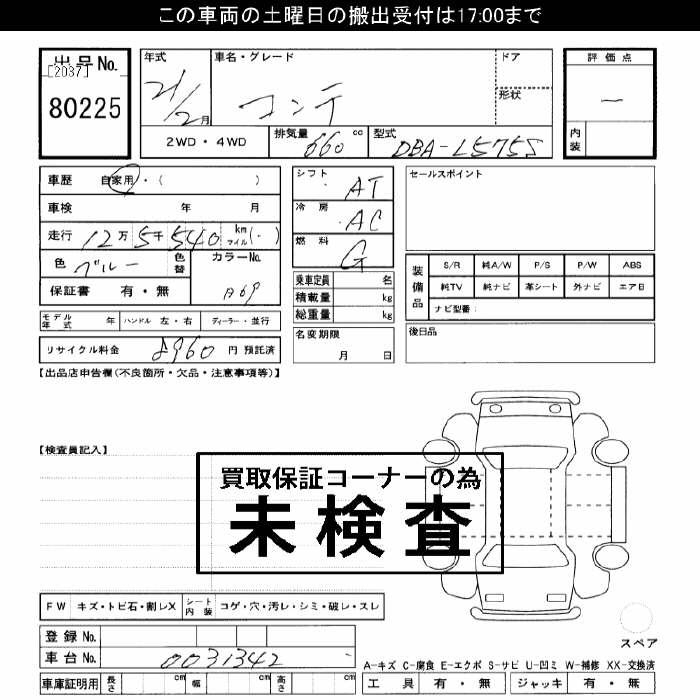 この車両の土曜日の搬出受付は17:00まで
出品No.
[2037]
80225
年式
21/2月
車名・グレード
コンテ
ドア
形状
2WD・4WD
排気量
660 cc
型式
DBA-L575S
評価点
ー
内装
車歴 自家用・( )
車検 年 月
走行 12万5千540 km マイル(・)
色 ブルー 色替 カラーNo.
保証書 有・無 B69
シフト AT
冷房 AC
燃料 G
乗車定員 名
積載量 kg
総重量 kg
名変期限
月 日
セールスポイント
装備品
S/R 純A/W P/S P/W ABS
純TV 純ナビ 革シート 外ナビ エアB
ナビ型番:
後日品
モデル年式 年 ハンドル 左・右 ディーラー・並行
リサイクル料金 8960 円 預託済
【出品店申告欄(不良箇所・欠品・注意事項等)】
【検査員記入】
買取保証コーナーの為
未検査
FW キズ・トビ石・割レX シート内装 コゲ・穴・汚レ・シミ・破レ・スレ
スペア
登録No.
車台No. 0031342
A-キズ C-腐食 E-エクボ S-サビ U-凹ミ W-補修 XX-交換済
車庫証明用 長さ cm 幅 cm 高さ cm
工具 有・無 ジャッキ 有・無